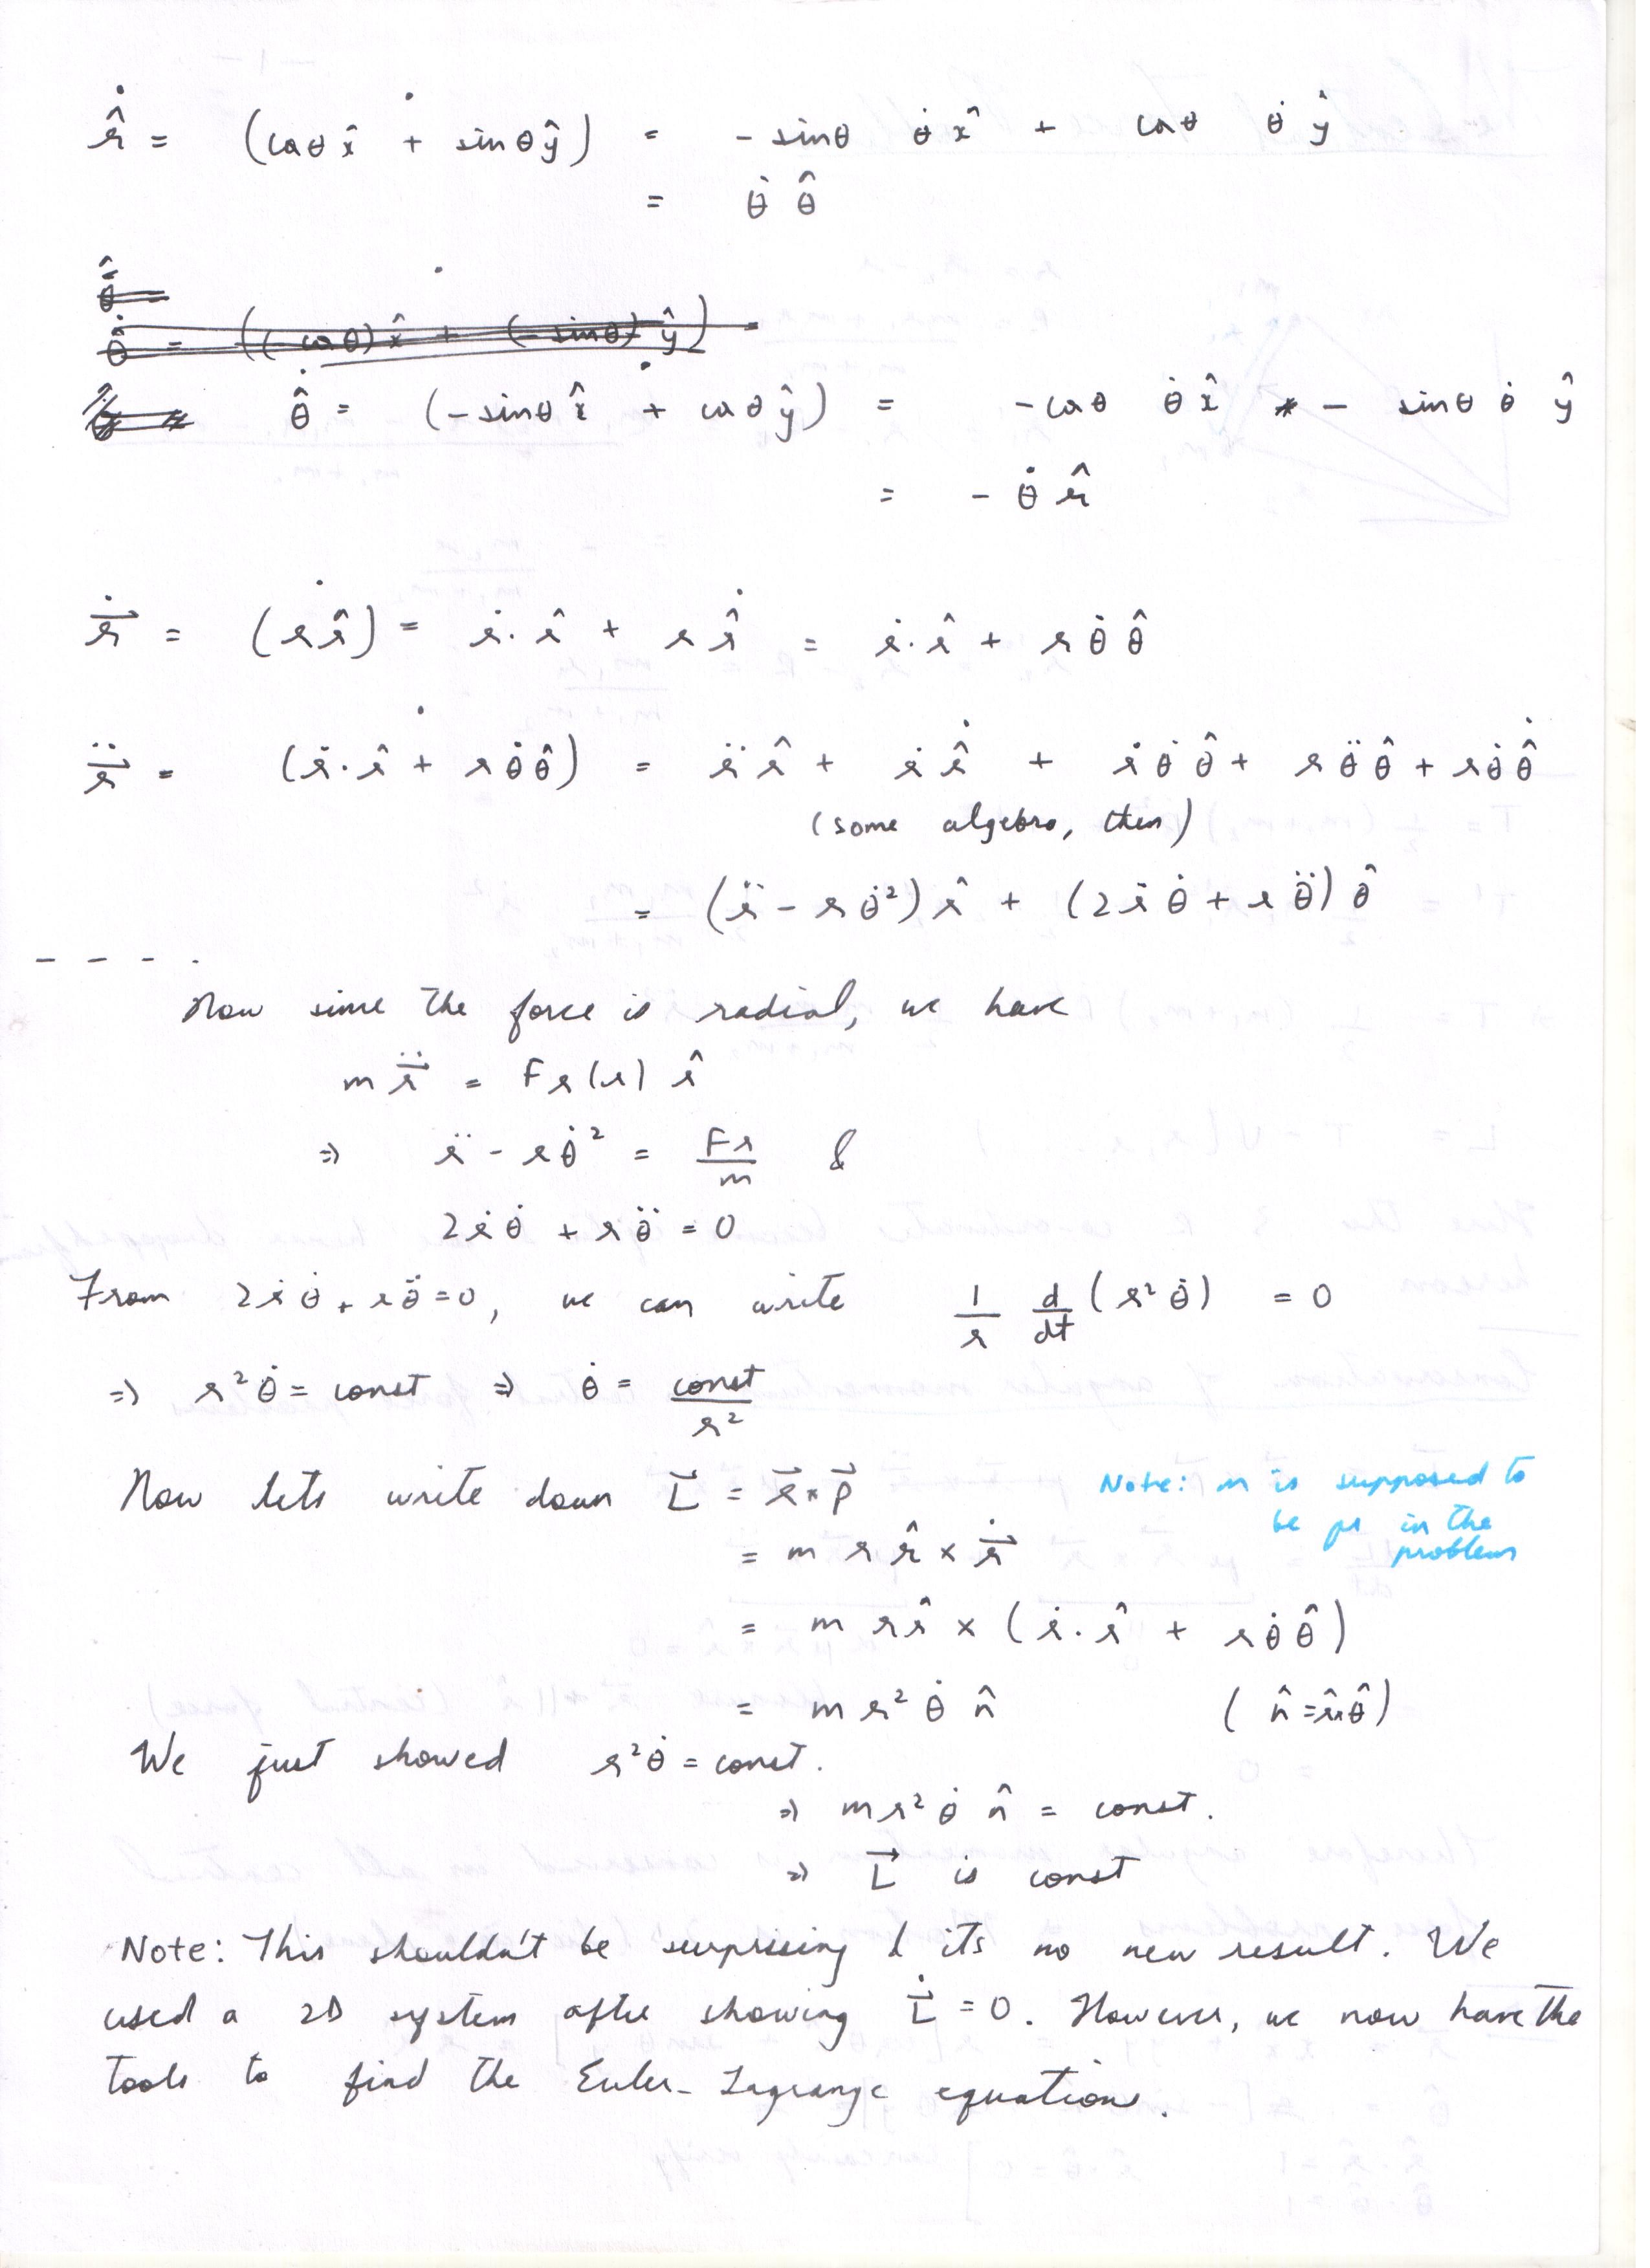 r̂̇ = (cosθ x̂ + sinθ ŷ)˙ = - sinθ θ̇ x̂ + cosθ θ̇ ŷ
= θ̇ θ̂
θ̂̇ = ((cosθ) x̂ + (-sinθ) ŷ)˙ =
θ̂̇ = (-sinθ x̂ + cosθ ŷ)˙ = -cosθ θ̇ x̂ - sinθ θ̇ ŷ
= - θ̇ r̂
r⃗̇ = (r r̂)˙ = ṙ. r̂ + r r̂̇ = ṙ. r̂ + r θ̇ θ̂
r⃗̈ = (ṙ. r̂ + r θ̇ θ̂)˙ = r̈ r̂ + ṙ r̂̇ + ṙ θ̇ θ̂ + r θ̈ θ̂ + r θ̇ θ̂̇
(some algebra, then)
= (r̈ - r θ̇²) r̂ + (2 ṙ θ̇ + r θ̈) θ̂
- - - -
Now since the force is radial, we have
m r⃗̈ = Fr(r) r̂
⇒ r̈ - r θ̇² = Fr/m &
2 ṙ θ̇ + r θ̈ = 0
From 2 ṙ θ̇ + r θ̈ = 0, we can write 1/r d/dt (r² θ̇) = 0
⇒ r² θ̇ = const ⇒ θ̇ = const/r²
Now lets write down L⃗ = r⃗ × p⃗
Note: m is supposed to
be μ in the
problem
= m r r̂ × r⃗̇
= m r r̂ × (ṙ. r̂ + r θ̇ θ̂)
= m r² θ̇ n̂ ( n̂ = r̂×θ̂ )
We just showed r² θ̇ = const.
⇒ m r² θ̇ n̂ = const.
⇒ L⃗ is const
Note: This shouldn't be surprising & its no new result. We
used a 2D system after showing L⃗̇ = 0. However, we now have the
tools to find the Euler-Lagrange equations.